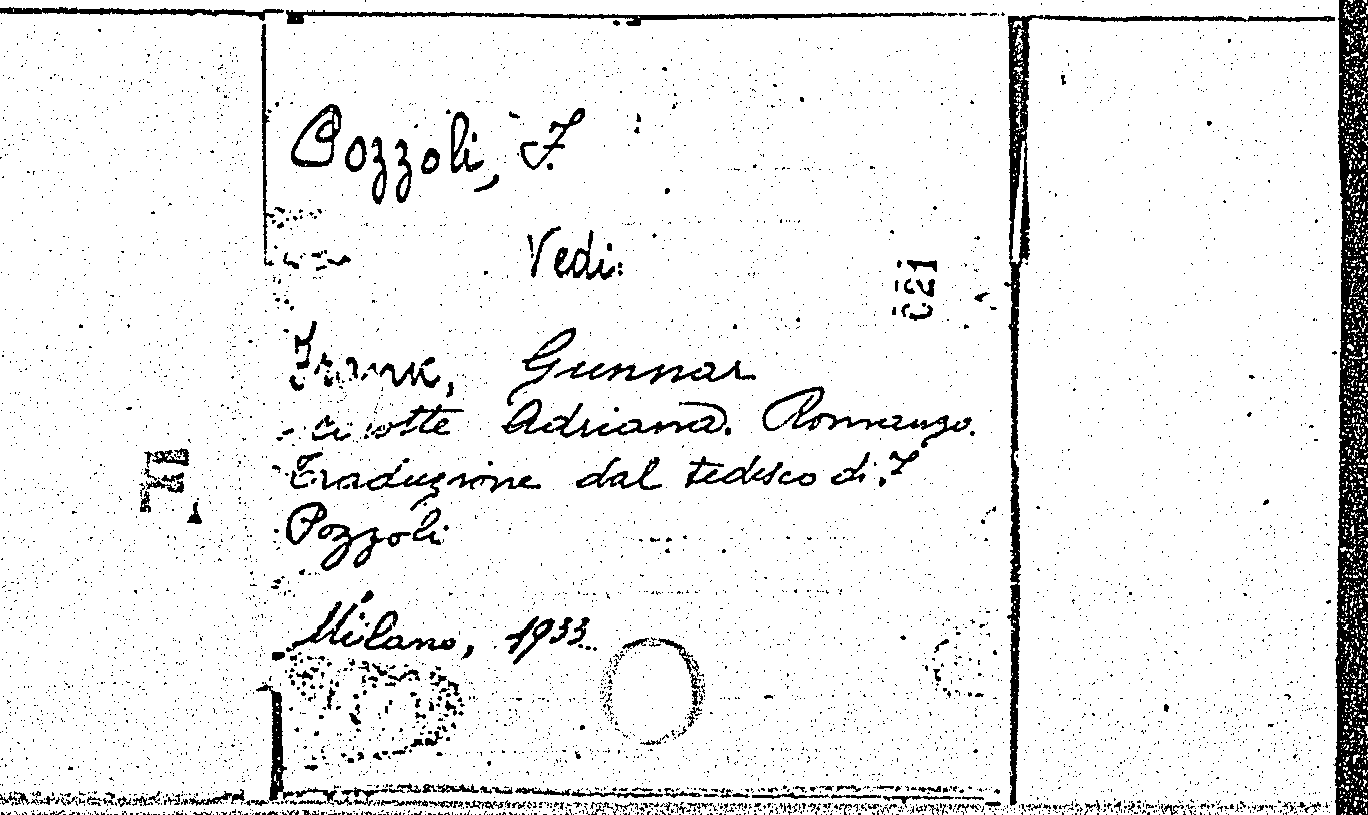 Pozzoli, F.
Vedi:
Frank, Gunnar
Adriana. Romanzo.
Traduzione dal tedesco di F
Pozzoli
Milano, 1933.